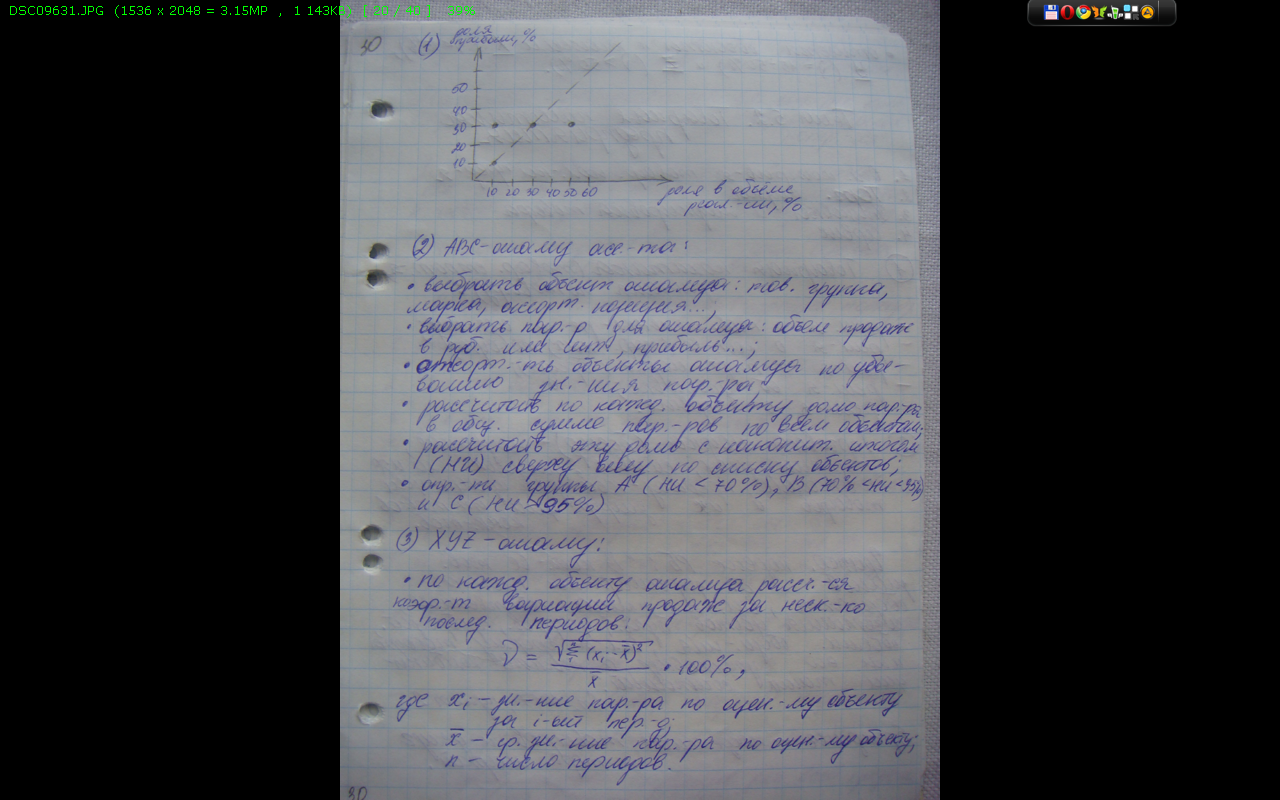 DSC09631.JPG (1536 x 2048 = 3.15MP , 1 143KB)
30
(1) доля прибыли, %
50
40
30
20
10
10 20 30 40 50 60
доля в объёме
реал.-ии, %
(2) ABC-анализ асс.-та:
• выбрать объект анализа: тов. группа,
марка, ассорт. позиция...;
• выбрать пар.-р для анализа: объём продаж
в руб. или шт, прибыль...;
• отсорт.-ть объекты анализа по убы-
ванию зн.-ния пар.-ра;
• рассчитать по кажд. объекту долю пар-ра
в общ. сумме пар.-ров по всем объектам;
• рассчитать эту долю с накопит. итогом
(НИ) сверху вниз по списку объектов;
• опр.-ть группы А (НИ < 70%), В (70% < НИ < 95%)
и С (НИ > 95%)
(3) XYZ-анализ:
• по кажд. объекту анализа рассч.-ся
коэф.-т вариации продаж за неск.-ко
послед. периодов.
ν = √Σ (xᵢ - x̄)² / x̄ • 100%,
где xᵢ - зн.-ние пар.-ра по оцен.-му объекту
за i-ый пер.-д;
x̄ - ср. зн.-ние пар.-ра по оцен.-му объекту;
n - число периодов.
30